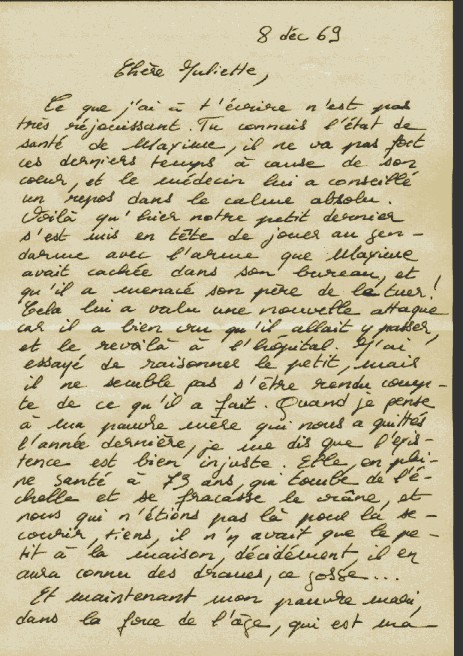 8 déc 69
Chère Juliette,
Ce que j'ai à t'écrire n'est pas
très réjouissant. Tu connais l'état de
santé de Maxime, il ne va pas fort
ces derniers temps à cause de son
cœur, et le médecin lui a conseillé
un repos dans le calme absolu.
Voilà qu'hier notre petit dernier
s'est mis en tête de jouer au gen-
darme avec l'arme que Maxime
avait cachée dans son bureau, et
qu'il a menacé son père de le tuer !
Cela lui a valu une nouvelle attaque
car il a bien cru qu'il allait y passer,
et le revoilà à l'hôpital. J'ai
essayé de raisonner le petit, mais
il ne semble pas s'être rendu comp-
te de ce qu'il a fait. Quand je pense
à ma pauvre mère qui nous a quittés
l'année dernière, je me dis que l'exis-
tence est bien injuste. Elle, en plei-
ne santé à 73 ans, qui tombe de l'é-
chelle et se fracasse le crâne, et
nous qui n'étions pas là pour la se-
courir, tiens, il n'y avait que le pe-
tit à la maison, décidément, il en
aura connu des drames, ce gosse...
Et maintenant mon pauvre mari,
dans la force de l'âge, qui est ma-